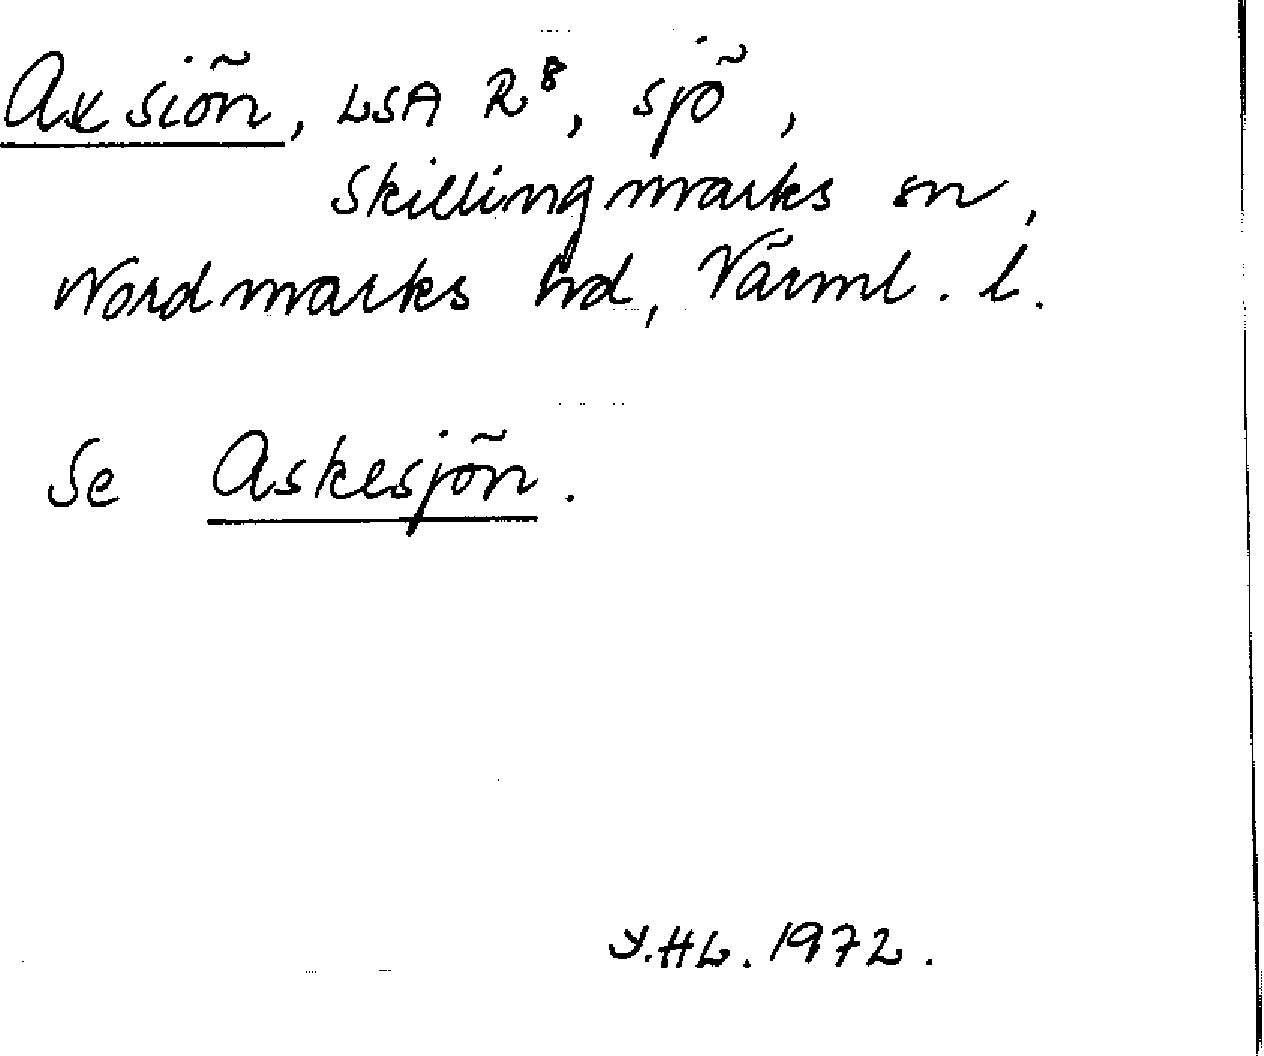 Axsiön, LSA R⁸, sjö,
Skillingmarks sn,
Nordmarks hd, Värml. l.
Se Askesjön.
Y.HL. 1972.